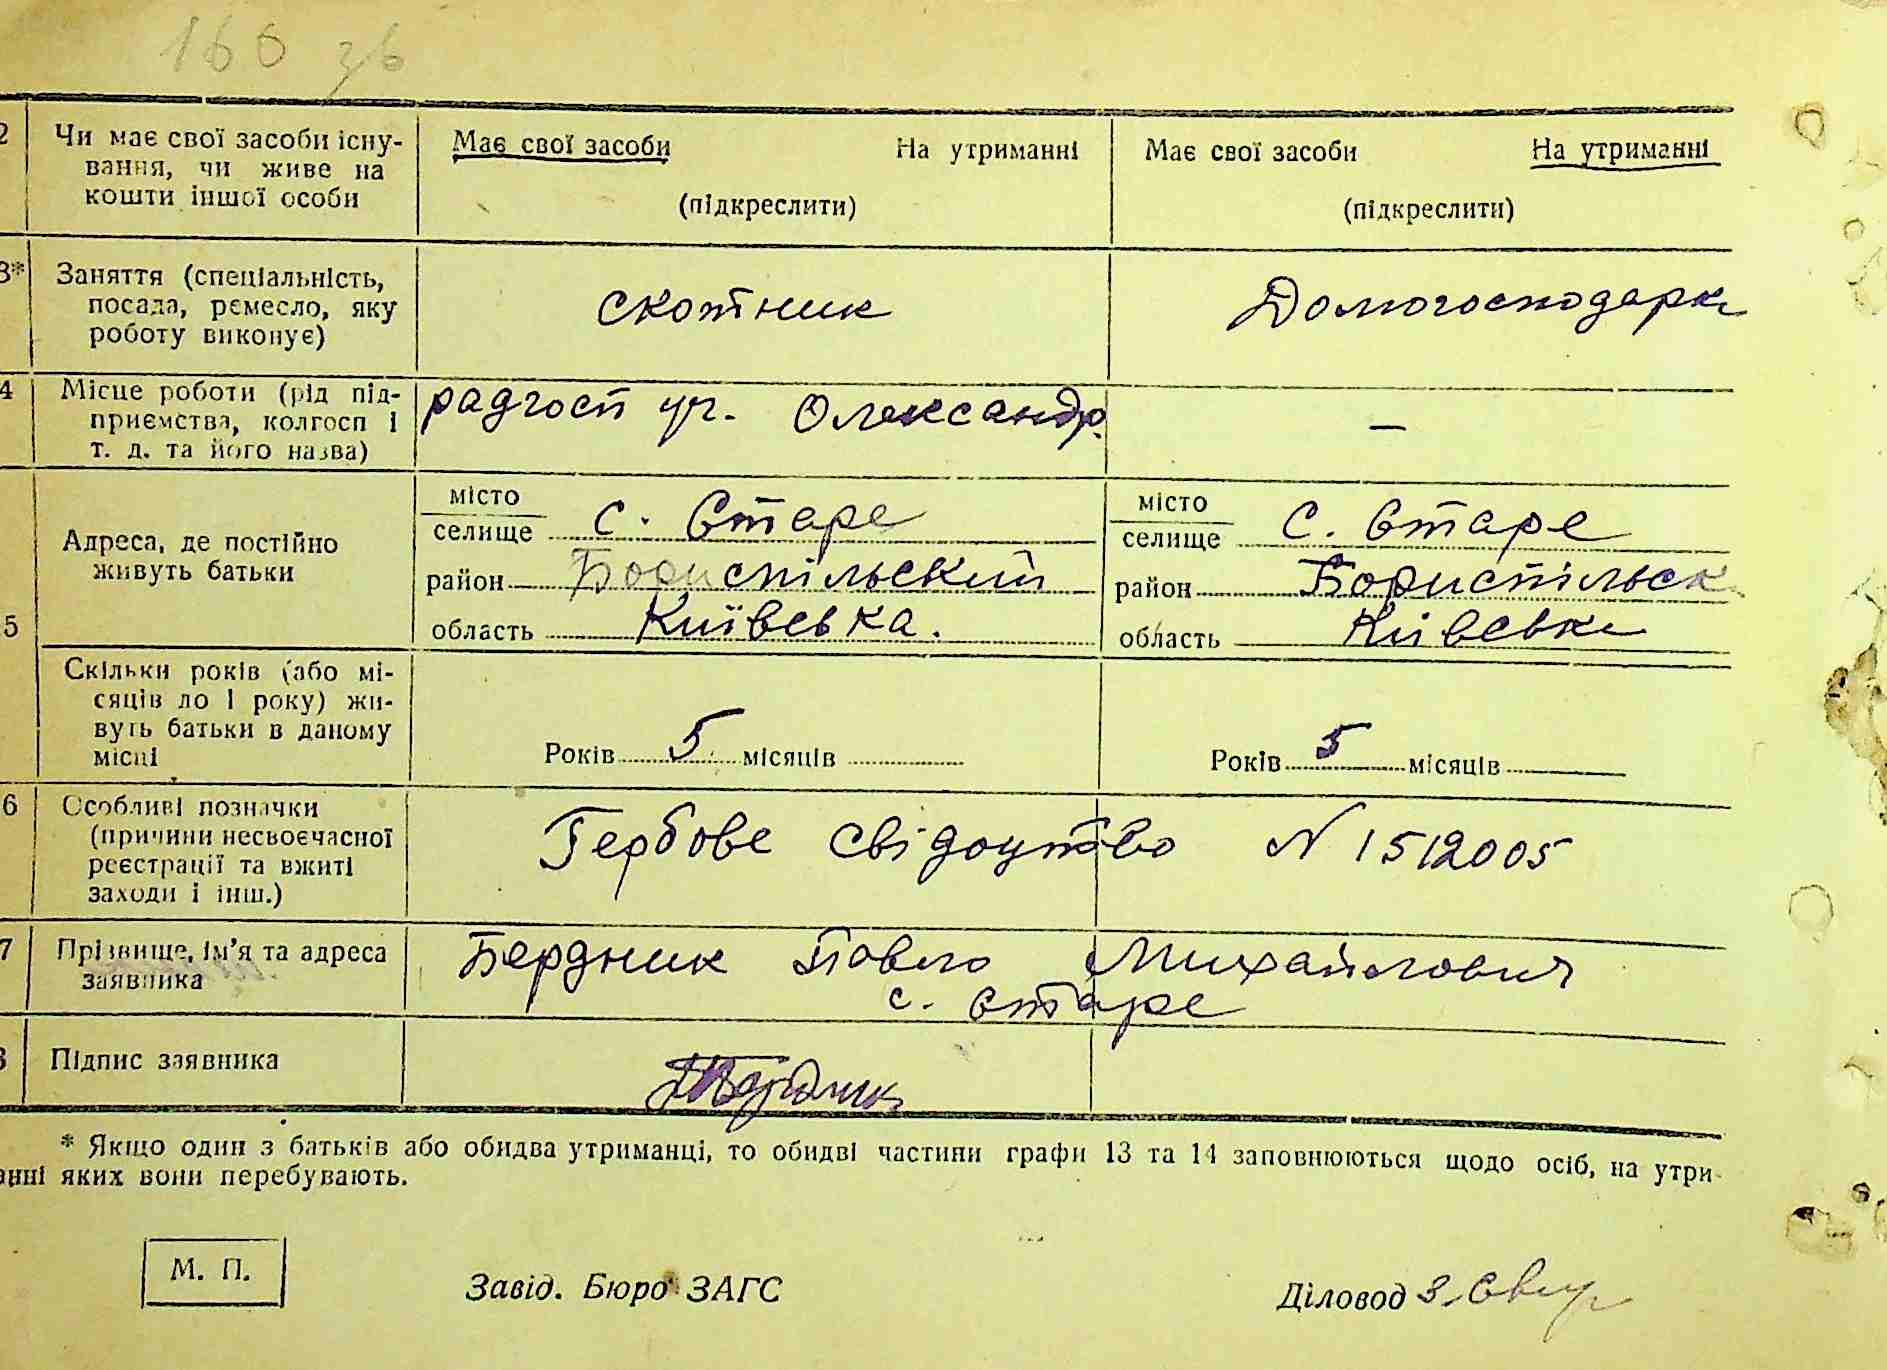 166 зв
2 Чи має свої засоби існу-
вання, чи живе на
кошти іншої особи
Має свої засоби На утриманні
(підкреслити)
Має свої засоби На утриманні
(підкреслити)
3* Заняття (спеціальність,
посада, ремесло, яку
роботу виконує)
скотник
Домогосподарка
4 Місце роботи (рід під-
приємства, колгосп і
т. д. та його назва)
радгосп Олександр.
—
5 Адреса, де постійно
живуть батьки
місто
селище с. Старе
район Бориспільский
область Київська.
місто
селище с. Старе
район Бориспільск
область Київська
Скільки років (або мі-
сяців до 1 року) жи-
вуть батьки в даному
місці
Років 5 місяців
Років 5 місяців
6 Особливі позначки
(причини несвоєчасної
реєстрації та вжиті
заходи і інш.)
Гербове свідоцтво N 1512005
7 Прізвище, ім'я та адреса
заявника
Бердник Павло Михайлович
с. Старе
8 Підпис заявника
Бердник
* Якщо один з батьків або обидва утриманці, то обидві частини графи 13 та 14 заповнюються щодо осіб, на утри-
анні яких вони перебувають.
М. П.
Завід. Бюро ЗАГС
Діловод